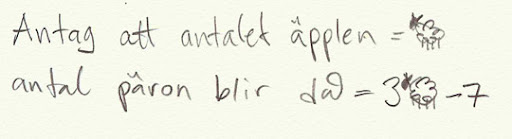 Antag att antalet äpplen =
antal päron blir då = 3 - 7